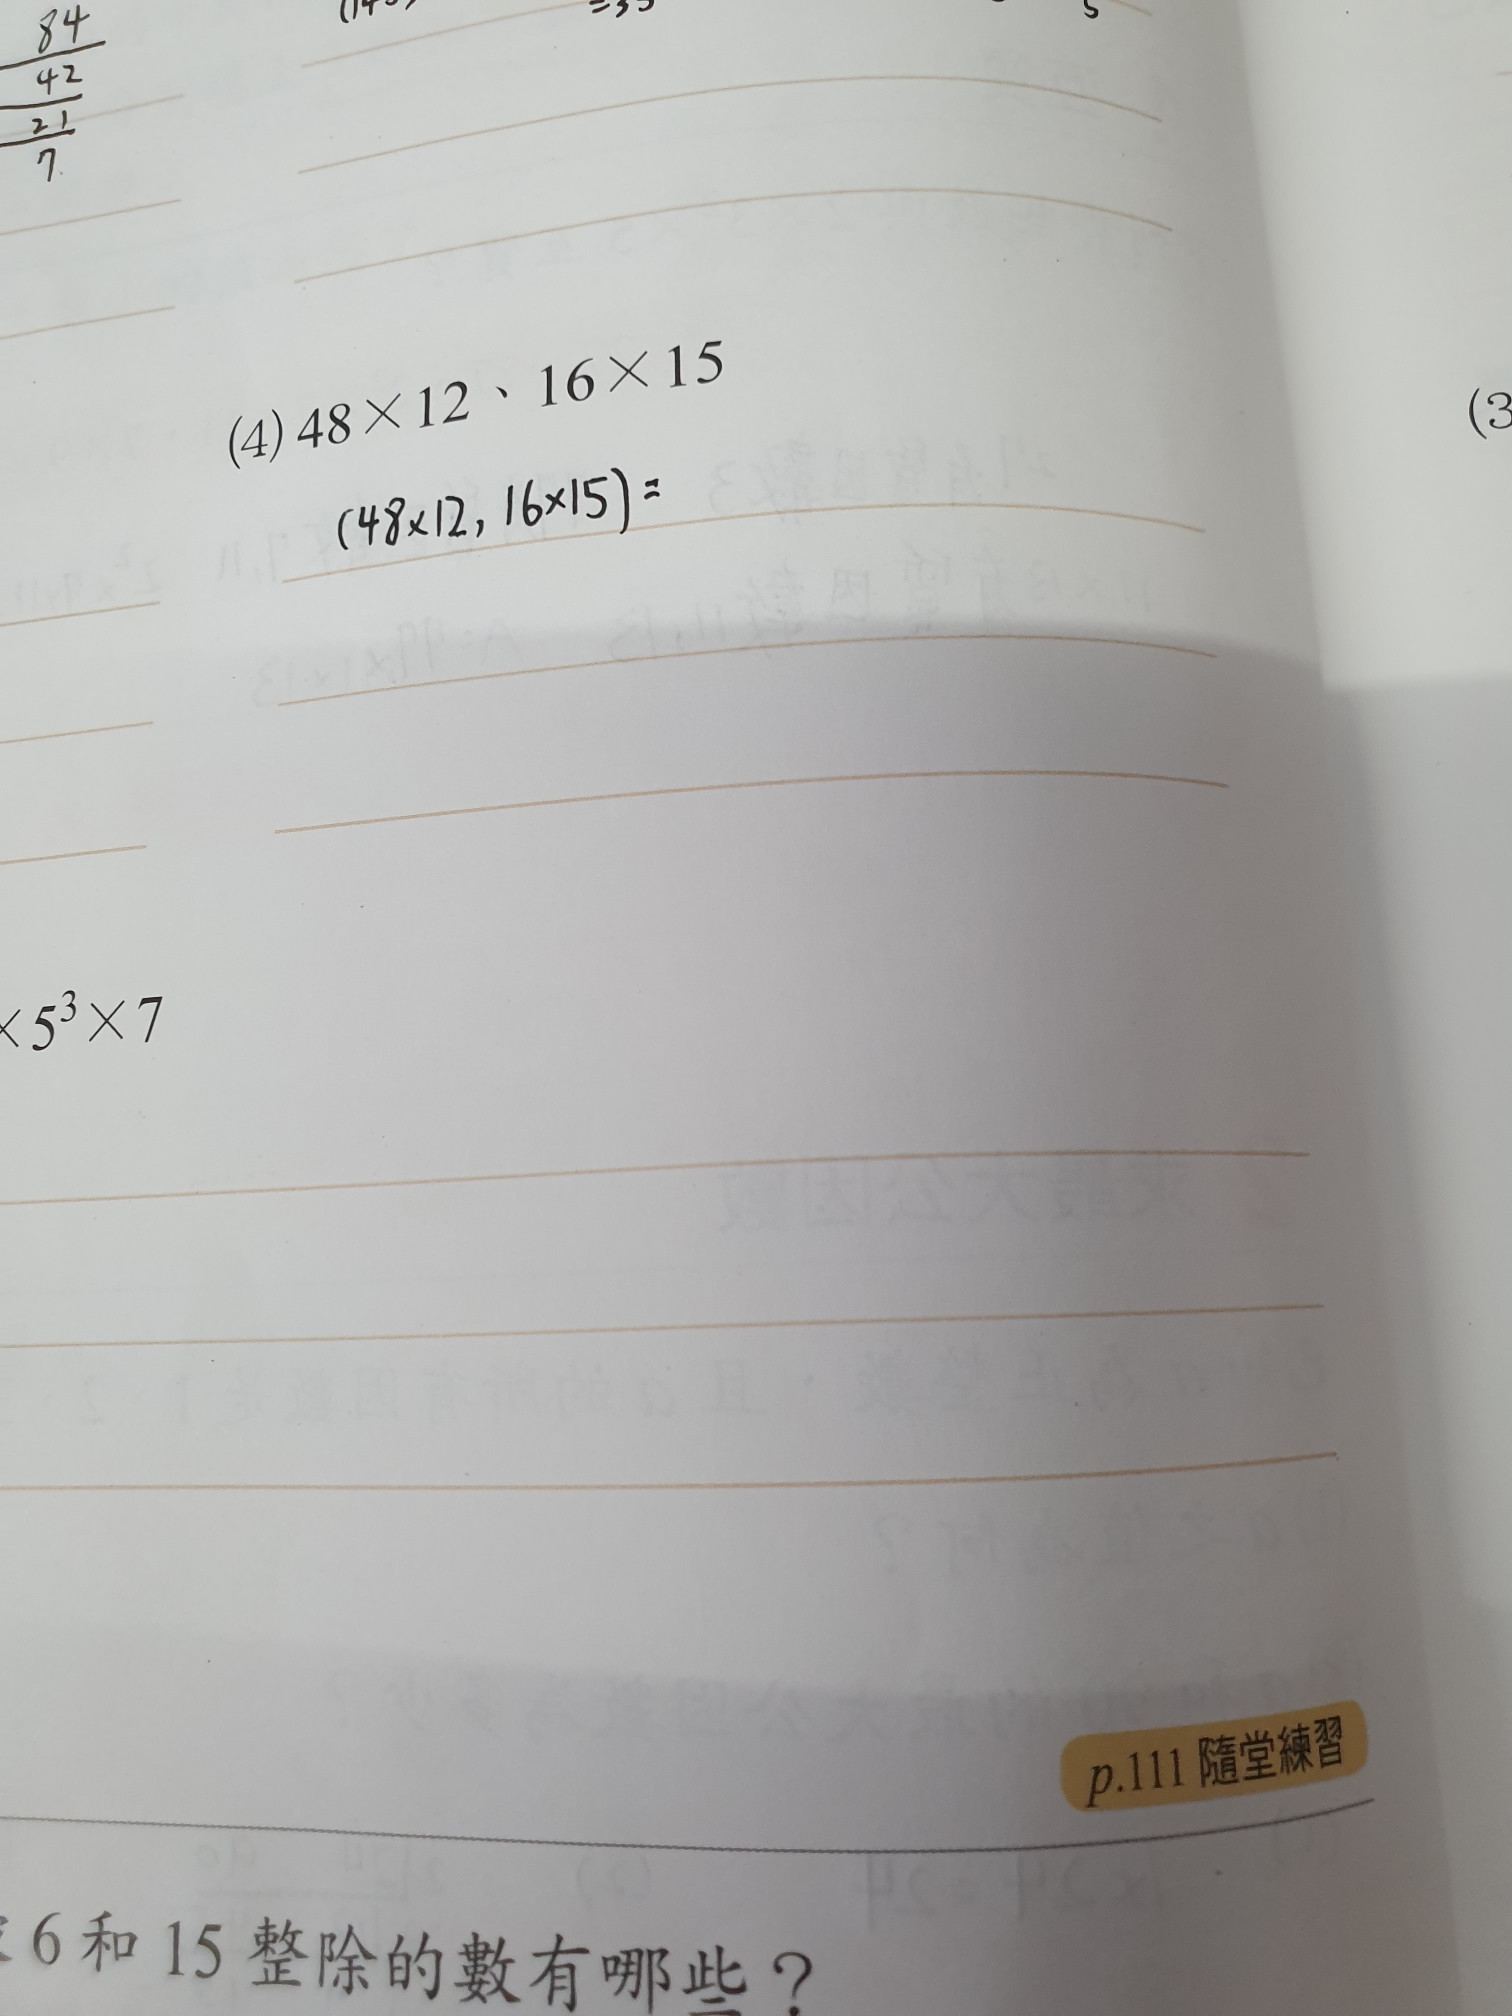 84
42
21
7
=35
5
(4) 48×12、16×15
(48×12, 16×15) =
(3
×5³×7
p.111 隨堂練習
6 和 15 整除的數有哪些？